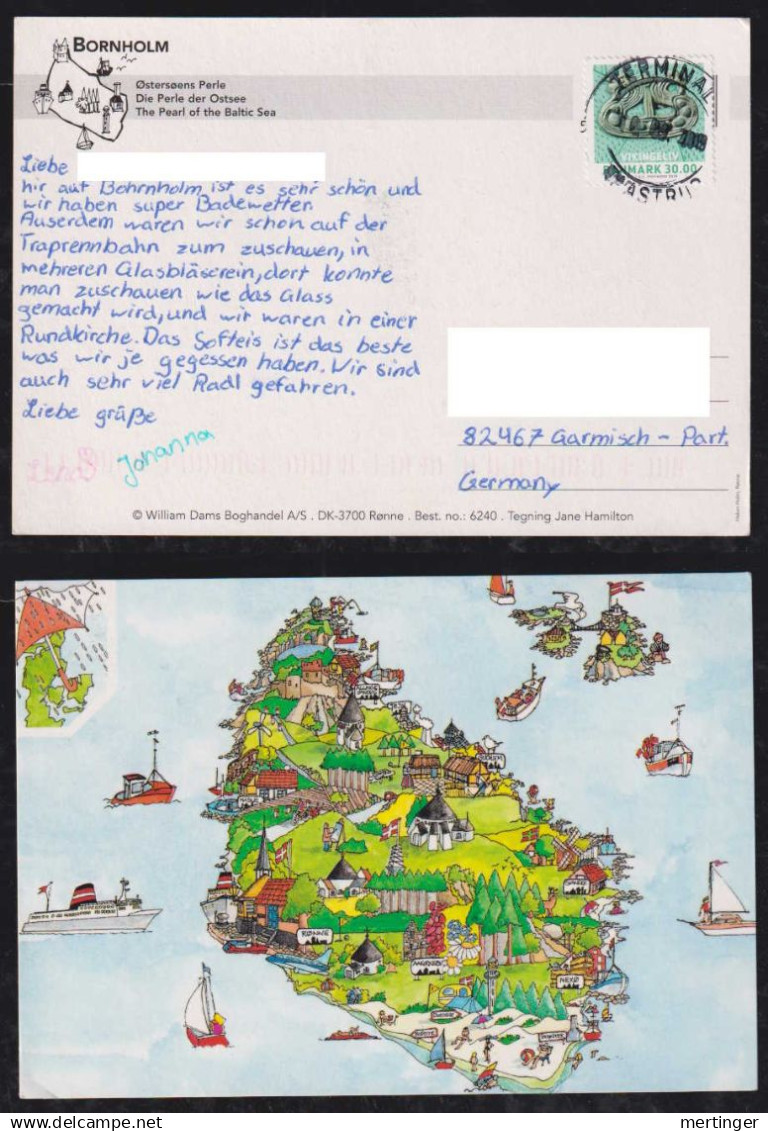 BORNHOLM
Østersøens Perle
Die Perle der Ostsee
The Pearl of the Baltic Sea
TERMINAL
VIKINGELIV
MARK 30.00
Liebe
hir auf Bohrnholm ist es sehr schön und
wir haben super Badewetter.
Auserdem waren wir schon auf der
Traprennbahn zum zuschauen, in
mehreren Glasbläserein, dort konnte
man zuschauen wie das Glass
gemacht wird, und wir waren in einer
Rundkirche. Das Softeis ist das beste
was wir je gegessen haben. Wir sind
auch sehr viel Radl gefahren.
Liebe grüße
Johanna
Lena
82467 Garmisch - Part.
Germany
© William Dams Boghandel A/S . DK-3700 Rønne . Best. no.: 6240 . Tegning Jane Hamilton
RØNNE
NEXØ
mertinger